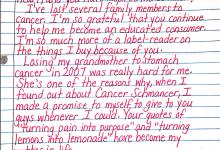 I've lost several family members to
cancer. I'm so grateful that you continue
to help me become an educated consumer.
I'm so much more of a label-reader on
the things I buy because of you.
Losing my grandmother to stomach
cancer in 2007 was really hard for me.
She's one of the reasons why, when I
found out about Cancer Schmancer, I
made a promise to myself to give to you
guys whenever I could. Your quotes of
"turning pain into purpose" and "turning
lemons into lemonade" have become my
in life